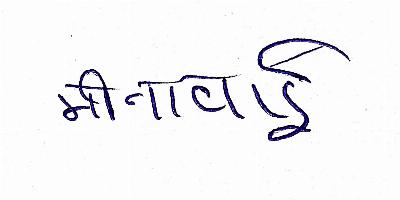 मीनाबाई